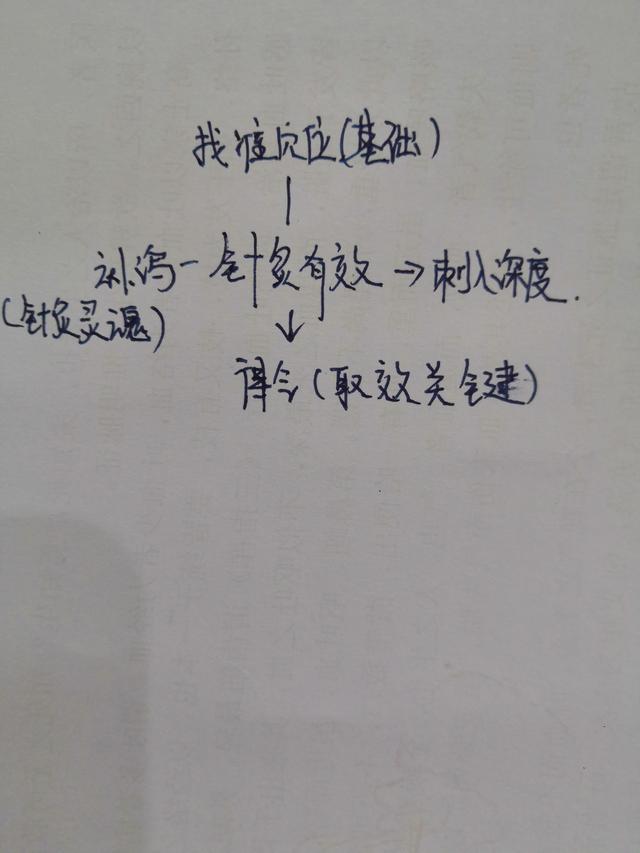 找准穴位(基础)
补泻-针灸有效→刺入深度.
(针灸灵魂)
得气(取效关键)